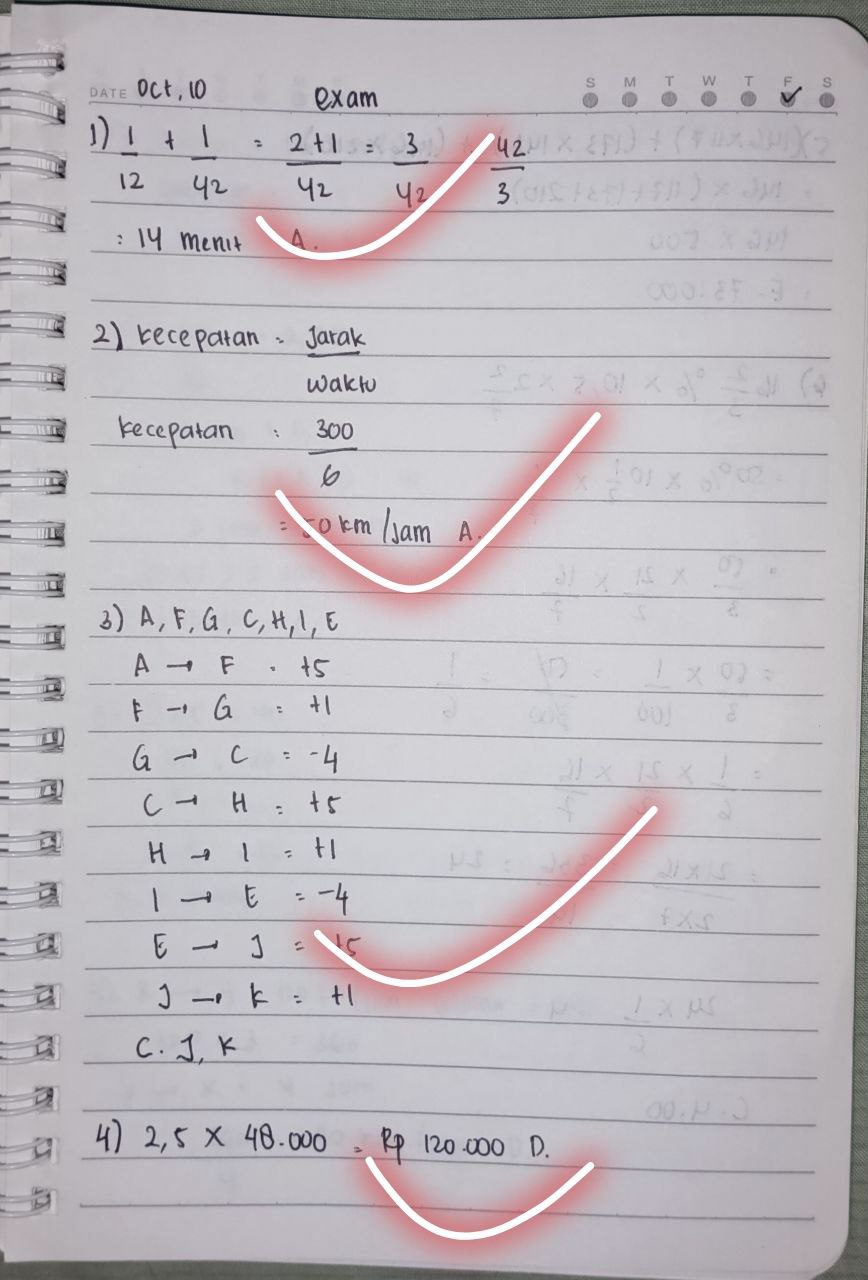 DATE Oct, 10 exam S M T W T F S
1) 1/12 + 1/42 = 2+1/42 = 3/42 42/3
: 14 menit A.
2) kecepatan = Jarak
waktu
kecepatan : 300
6
= 50 km/Jam A.
3) A, F, G, C, H, I, E
A → F = +5
F → G = +1
G → C = -4
C → H = +5
H → I = +1
I → E = -4
E → J = +5
J → K = +1
C. J, K
4) 2,5 X 48.000 = Rp 120.000 D.